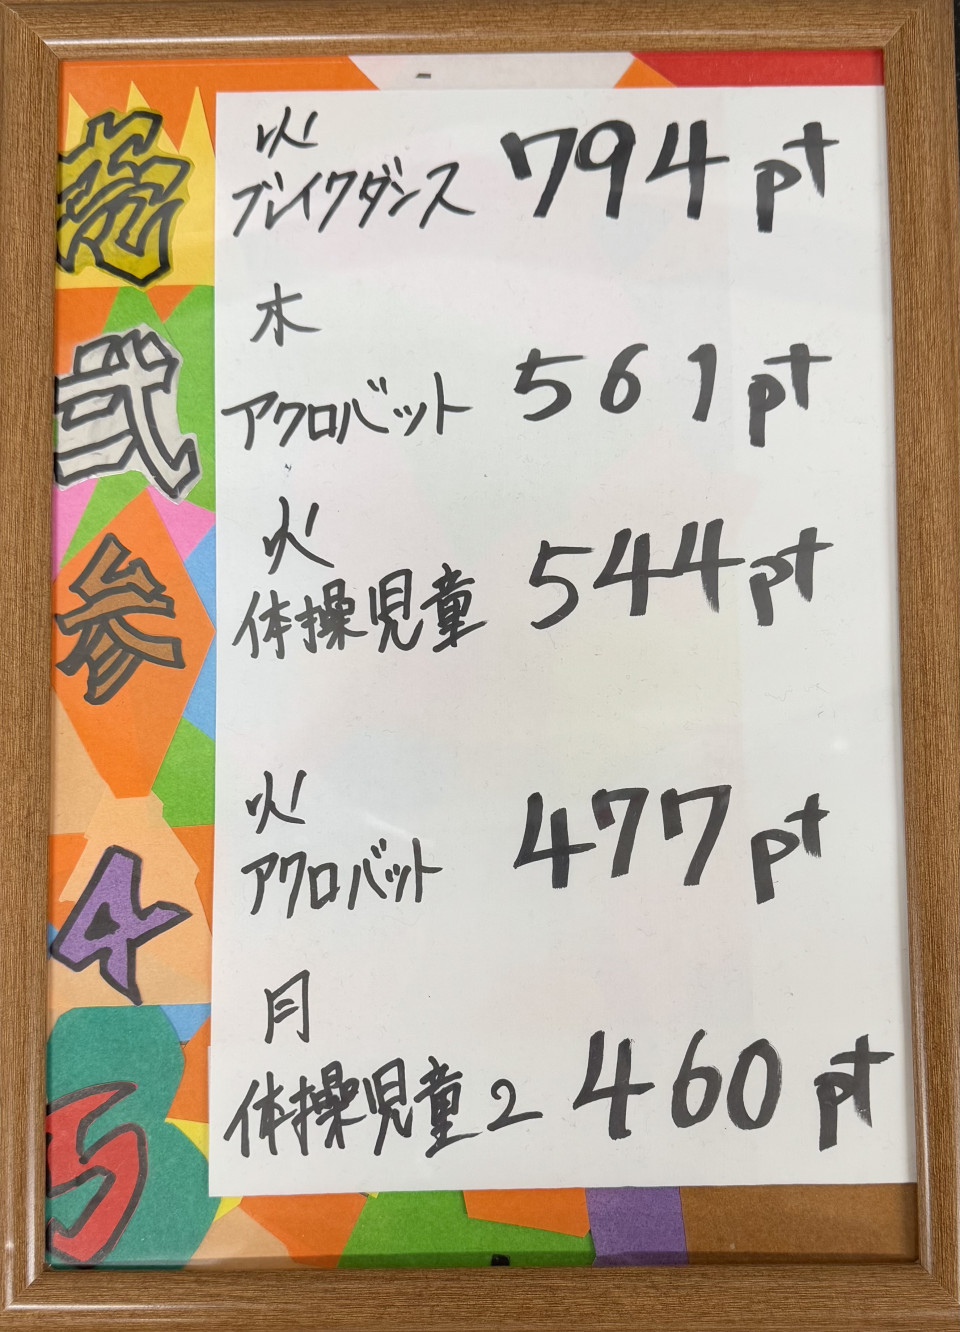 壱
火
ブレイクダンス 794pt
弐
木
アクロバット 561pt
参
火
体操児童 544pt
4
火
アクロバット 477pt
5
月
体操児童2 460pt